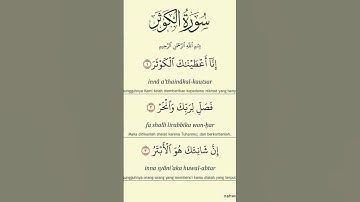 سورة الكوثر
بِسْمِ اللَّهِ الرَّحْمَٰنِ الرَّحِيمِ
إِنَّآ أَعْطَيْنَٰكَ ٱلْكَوْثَرَ ١
innā a'ṭhainākal-kautsar
ungguhnya Kami telah memberikan kepadamu nikmat yang bany
فَصَلِّ لِرَبِّكَ وَٱنْحَرْ ٢
fa shalli lirabbika wan-ḥar
Maka dirikanlah shalat karena Tuhanmu; dan berkorbanlah.
إِنَّ شَانِئَكَ هُوَ ٱلْأَبْتَرُ ٣
inna syāni'aka huwal-abtar
ungguhnya orang-orang yang membenci kamu dialah yang terput